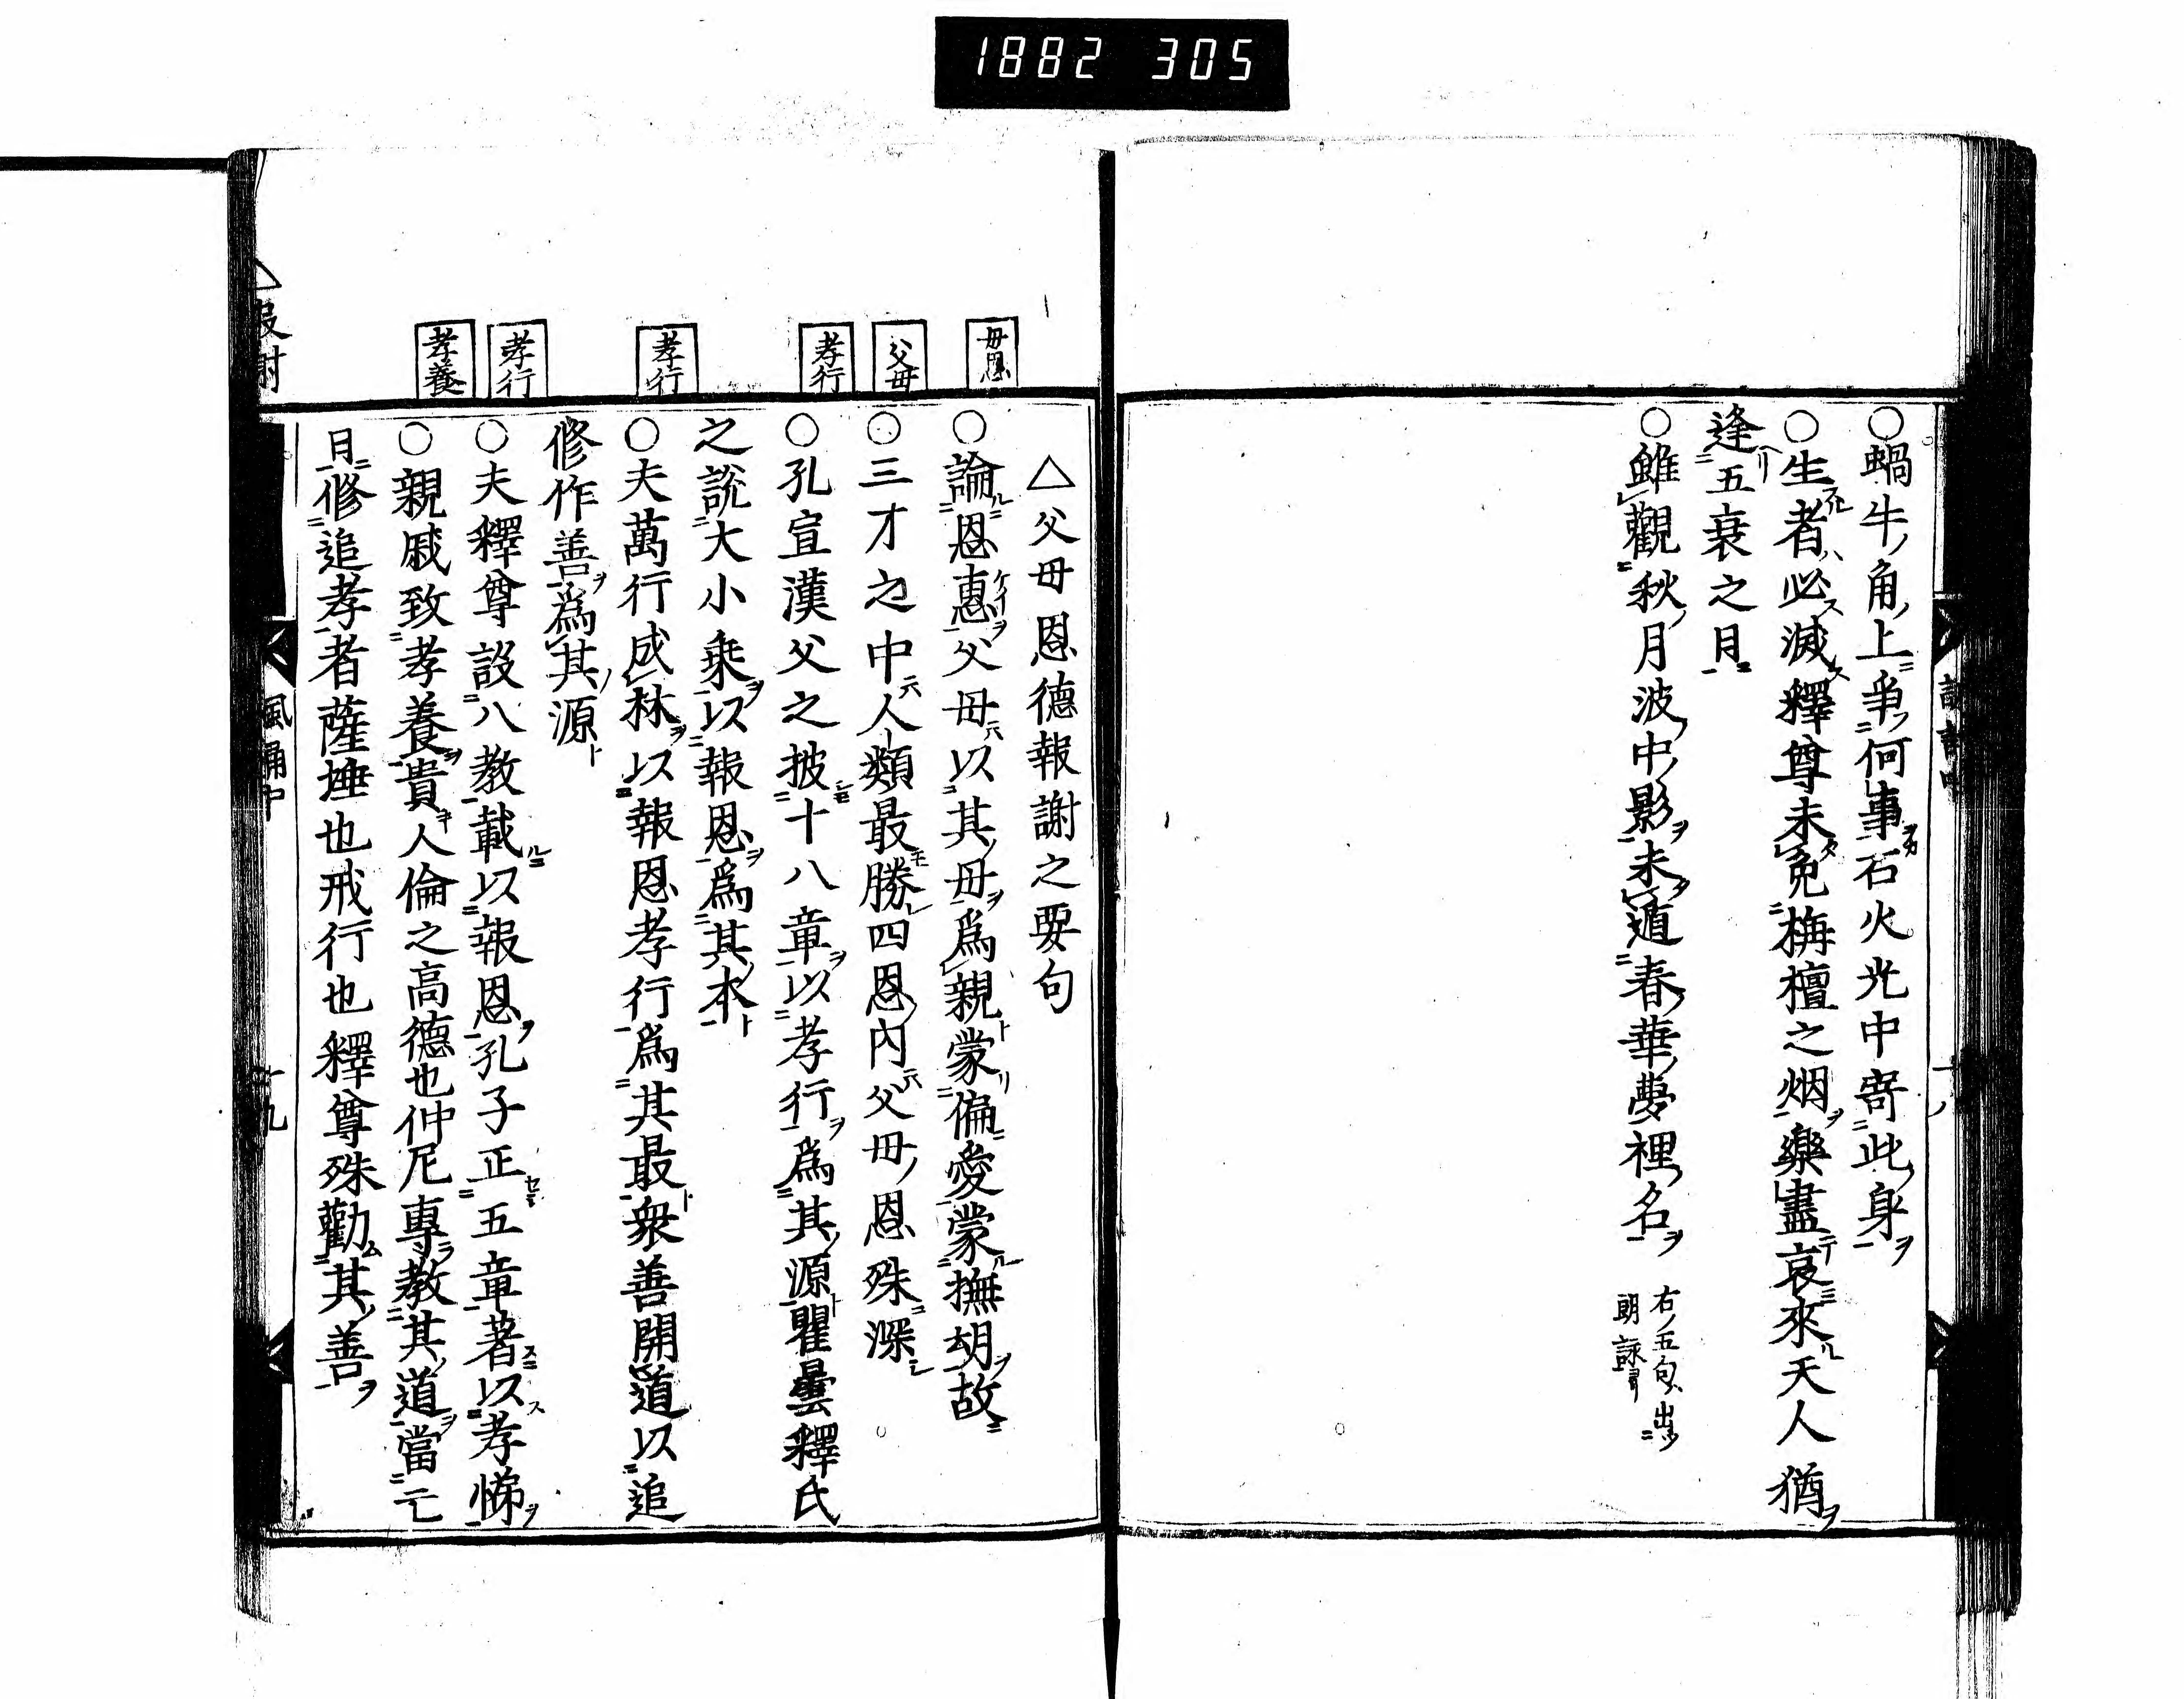 1882 305
○蝸牛ノ角ノ上ニ爭フ何事ヲカ石火光中寄此ノ身ヲ
○生者ハ必ス滅ス釋尊未タ免栴檀之烟ヲ樂盡テ哀來ル天人猶ヲ
逢ヘリ五衰之日ニ
○雖觀秋ノ月波ノ中ノ影ヲ未タ遁春ノ華ノ夢裡ノ名ヲ
右ノ五句ハ出タリ
朗詠
△父母恩德報謝之要句
母恩
○論ルニ恩惠ヲ父母以其ノ母ヲ爲親ト蒙リ偏愛蒙ル撫胡ヲ故ニ
父母
○三才之中人類最モ勝レ四恩ノ內父母ノ恩殊ニ深シ
孝行
○孔宣漢父之披十八章ヲ以孝行ヲ爲其ノ源ト瞿曇釋氏
之說大小乗ヲ以報恩ヲ爲其ノ本ト
孝行
○夫萬行成林ヲ以報恩孝行爲其最ト衆善開道以追
修作善ヲ爲其ノ源ト
孝行
○夫釋尊設八教載ルニ以報恩ヲ孔子正五章著スニ以ス孝悌ヲ
孝養
○親戚致孝養ヲ貴キ人倫之高德也仲尼專ラ教其ノ道ヲ當亡
日修追孝者薩埵也戒行也釋尊殊勸ム其ノ善ヲ
風誦中
十九